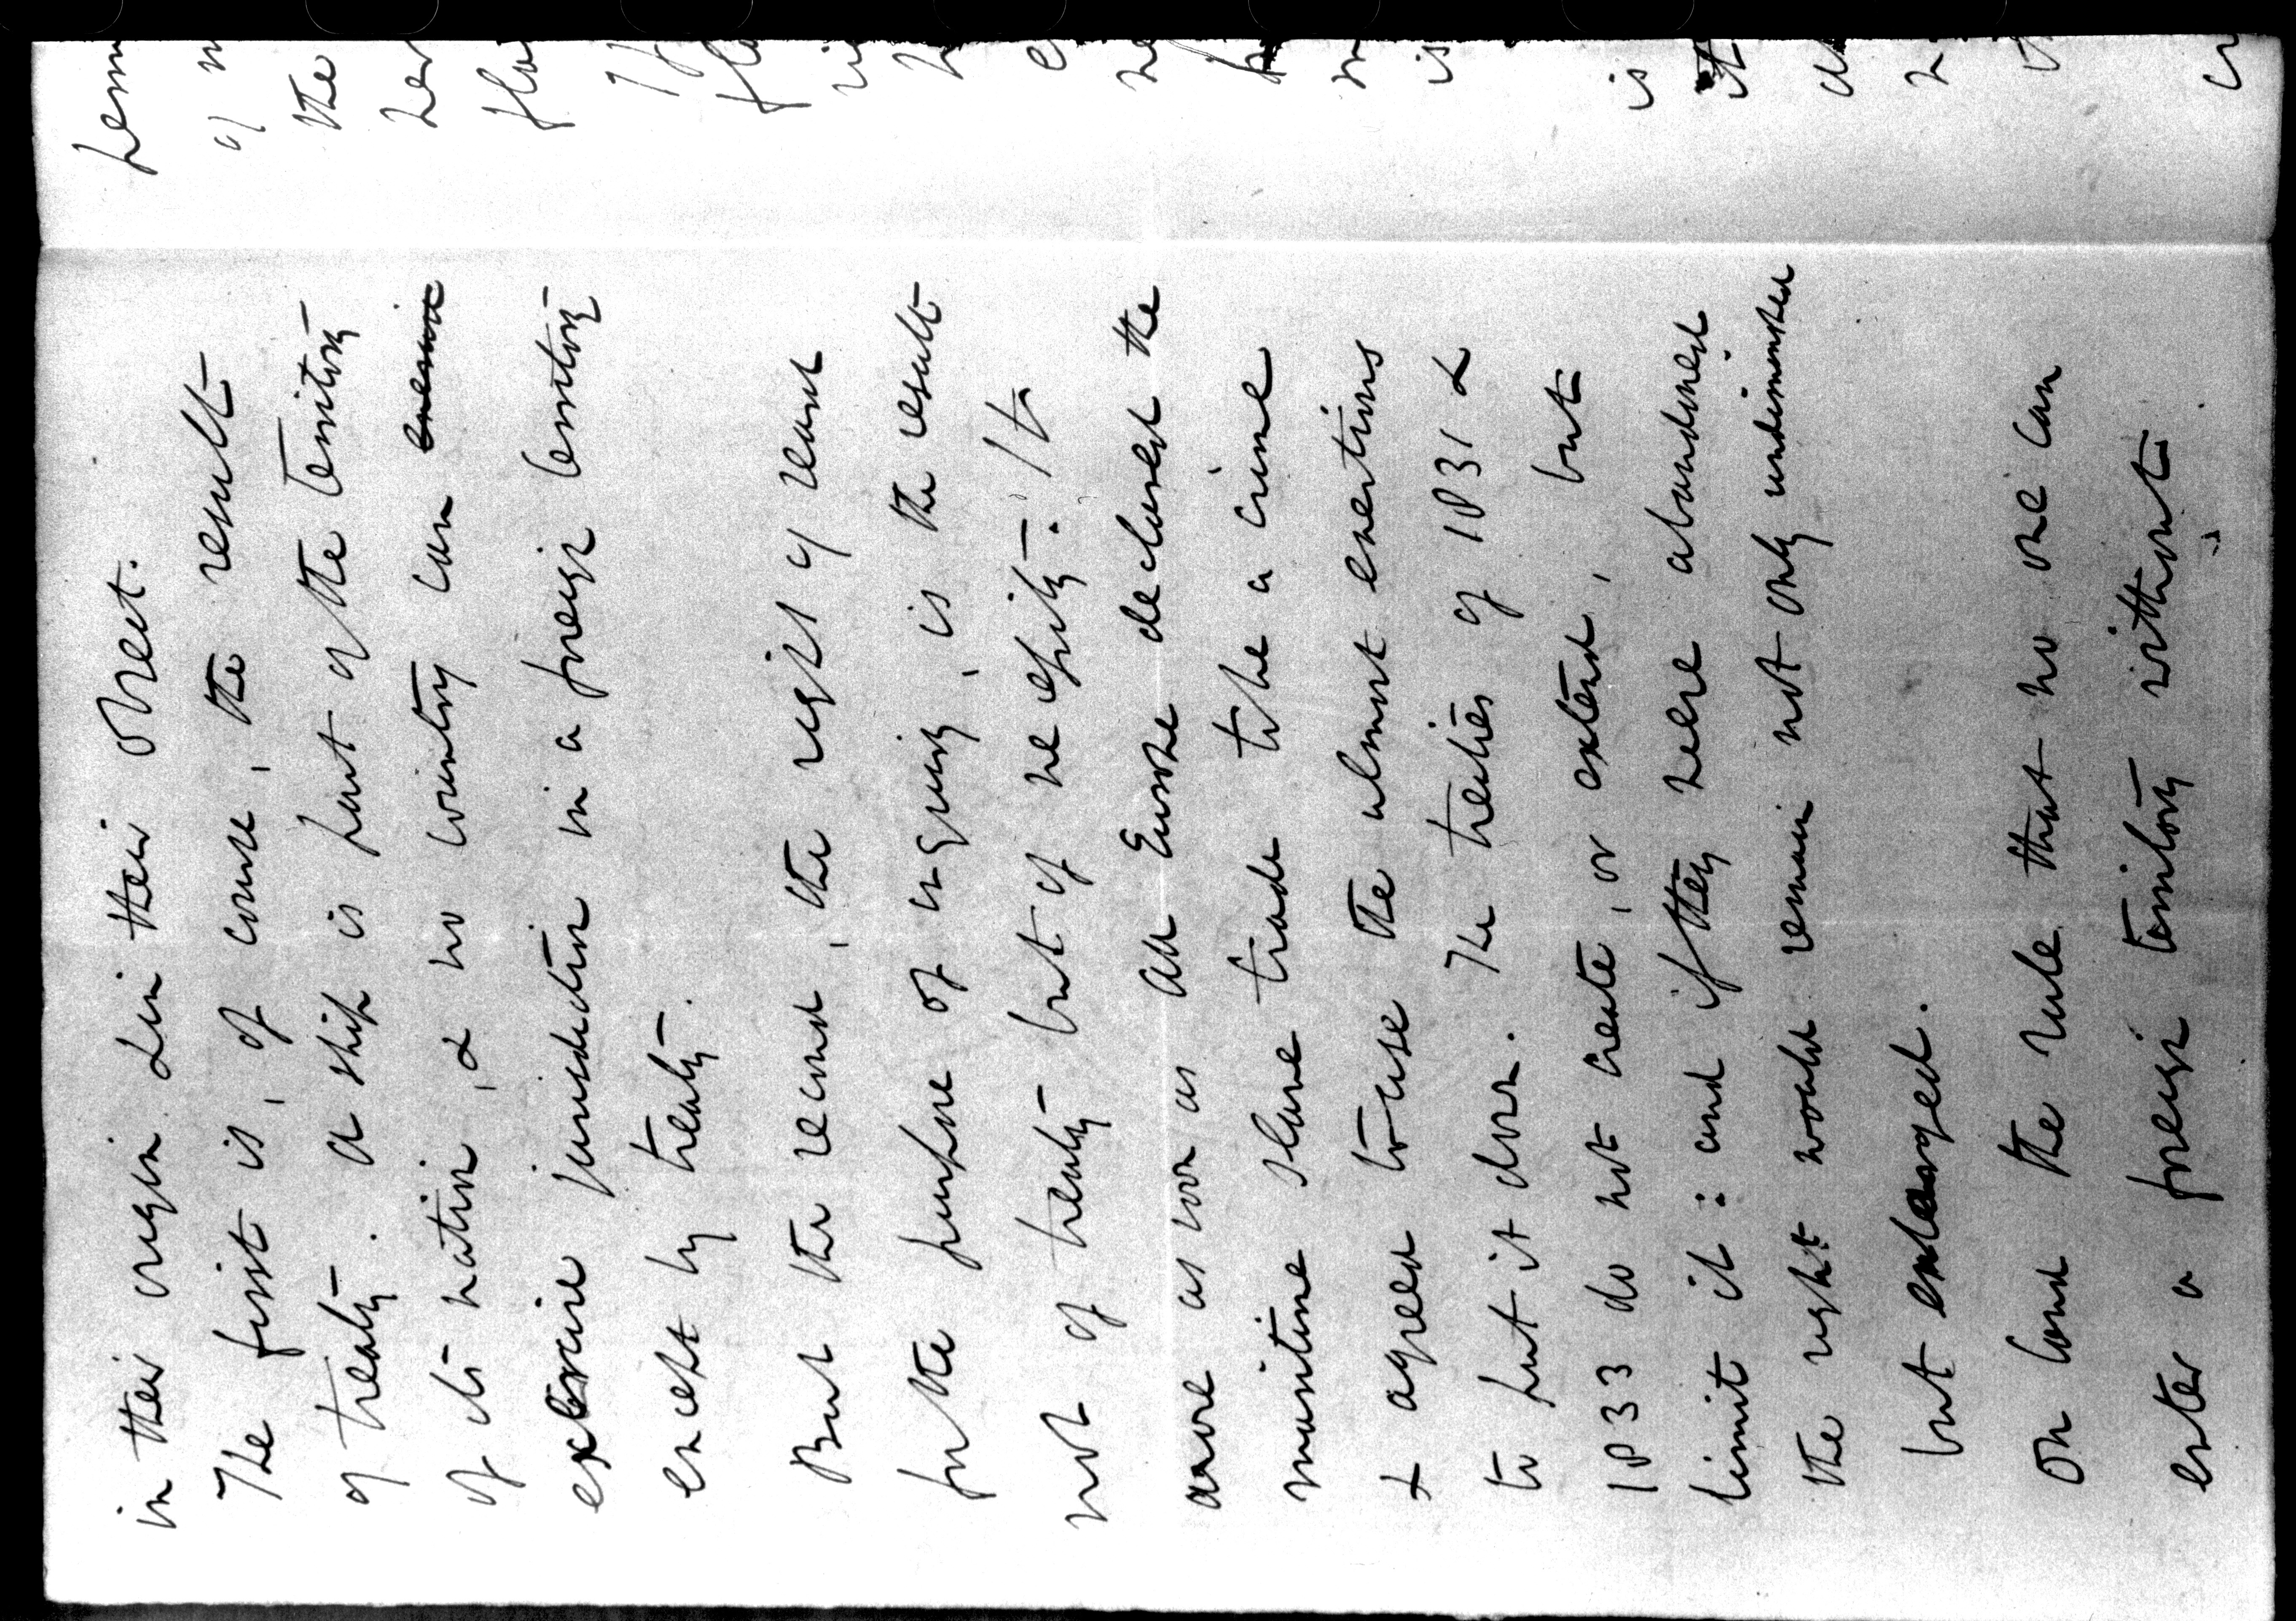 in their origin & in their object.
The first is, of course, the result
of treaty. A ship is part of the territory
of its nation, & no country can exercise
exercise jurisdiction in a foreign territory
except by treaty.
But the second, the right of search
for the purpose of enquiry, is the result
not of treaty but of necessity. It
arose as soon as all Europe declared the
maritime slave trade to be a crime
& agreed to use the utmost exertions
to put it down. The treaties of 1831 &
1833 do not create, or extend, but
limit it: and if they were abandoned
the right would remain not only undiminished
but enlarged.
On land the rule that no one can
enter a foreign territory without
of
the
her
is
is
it